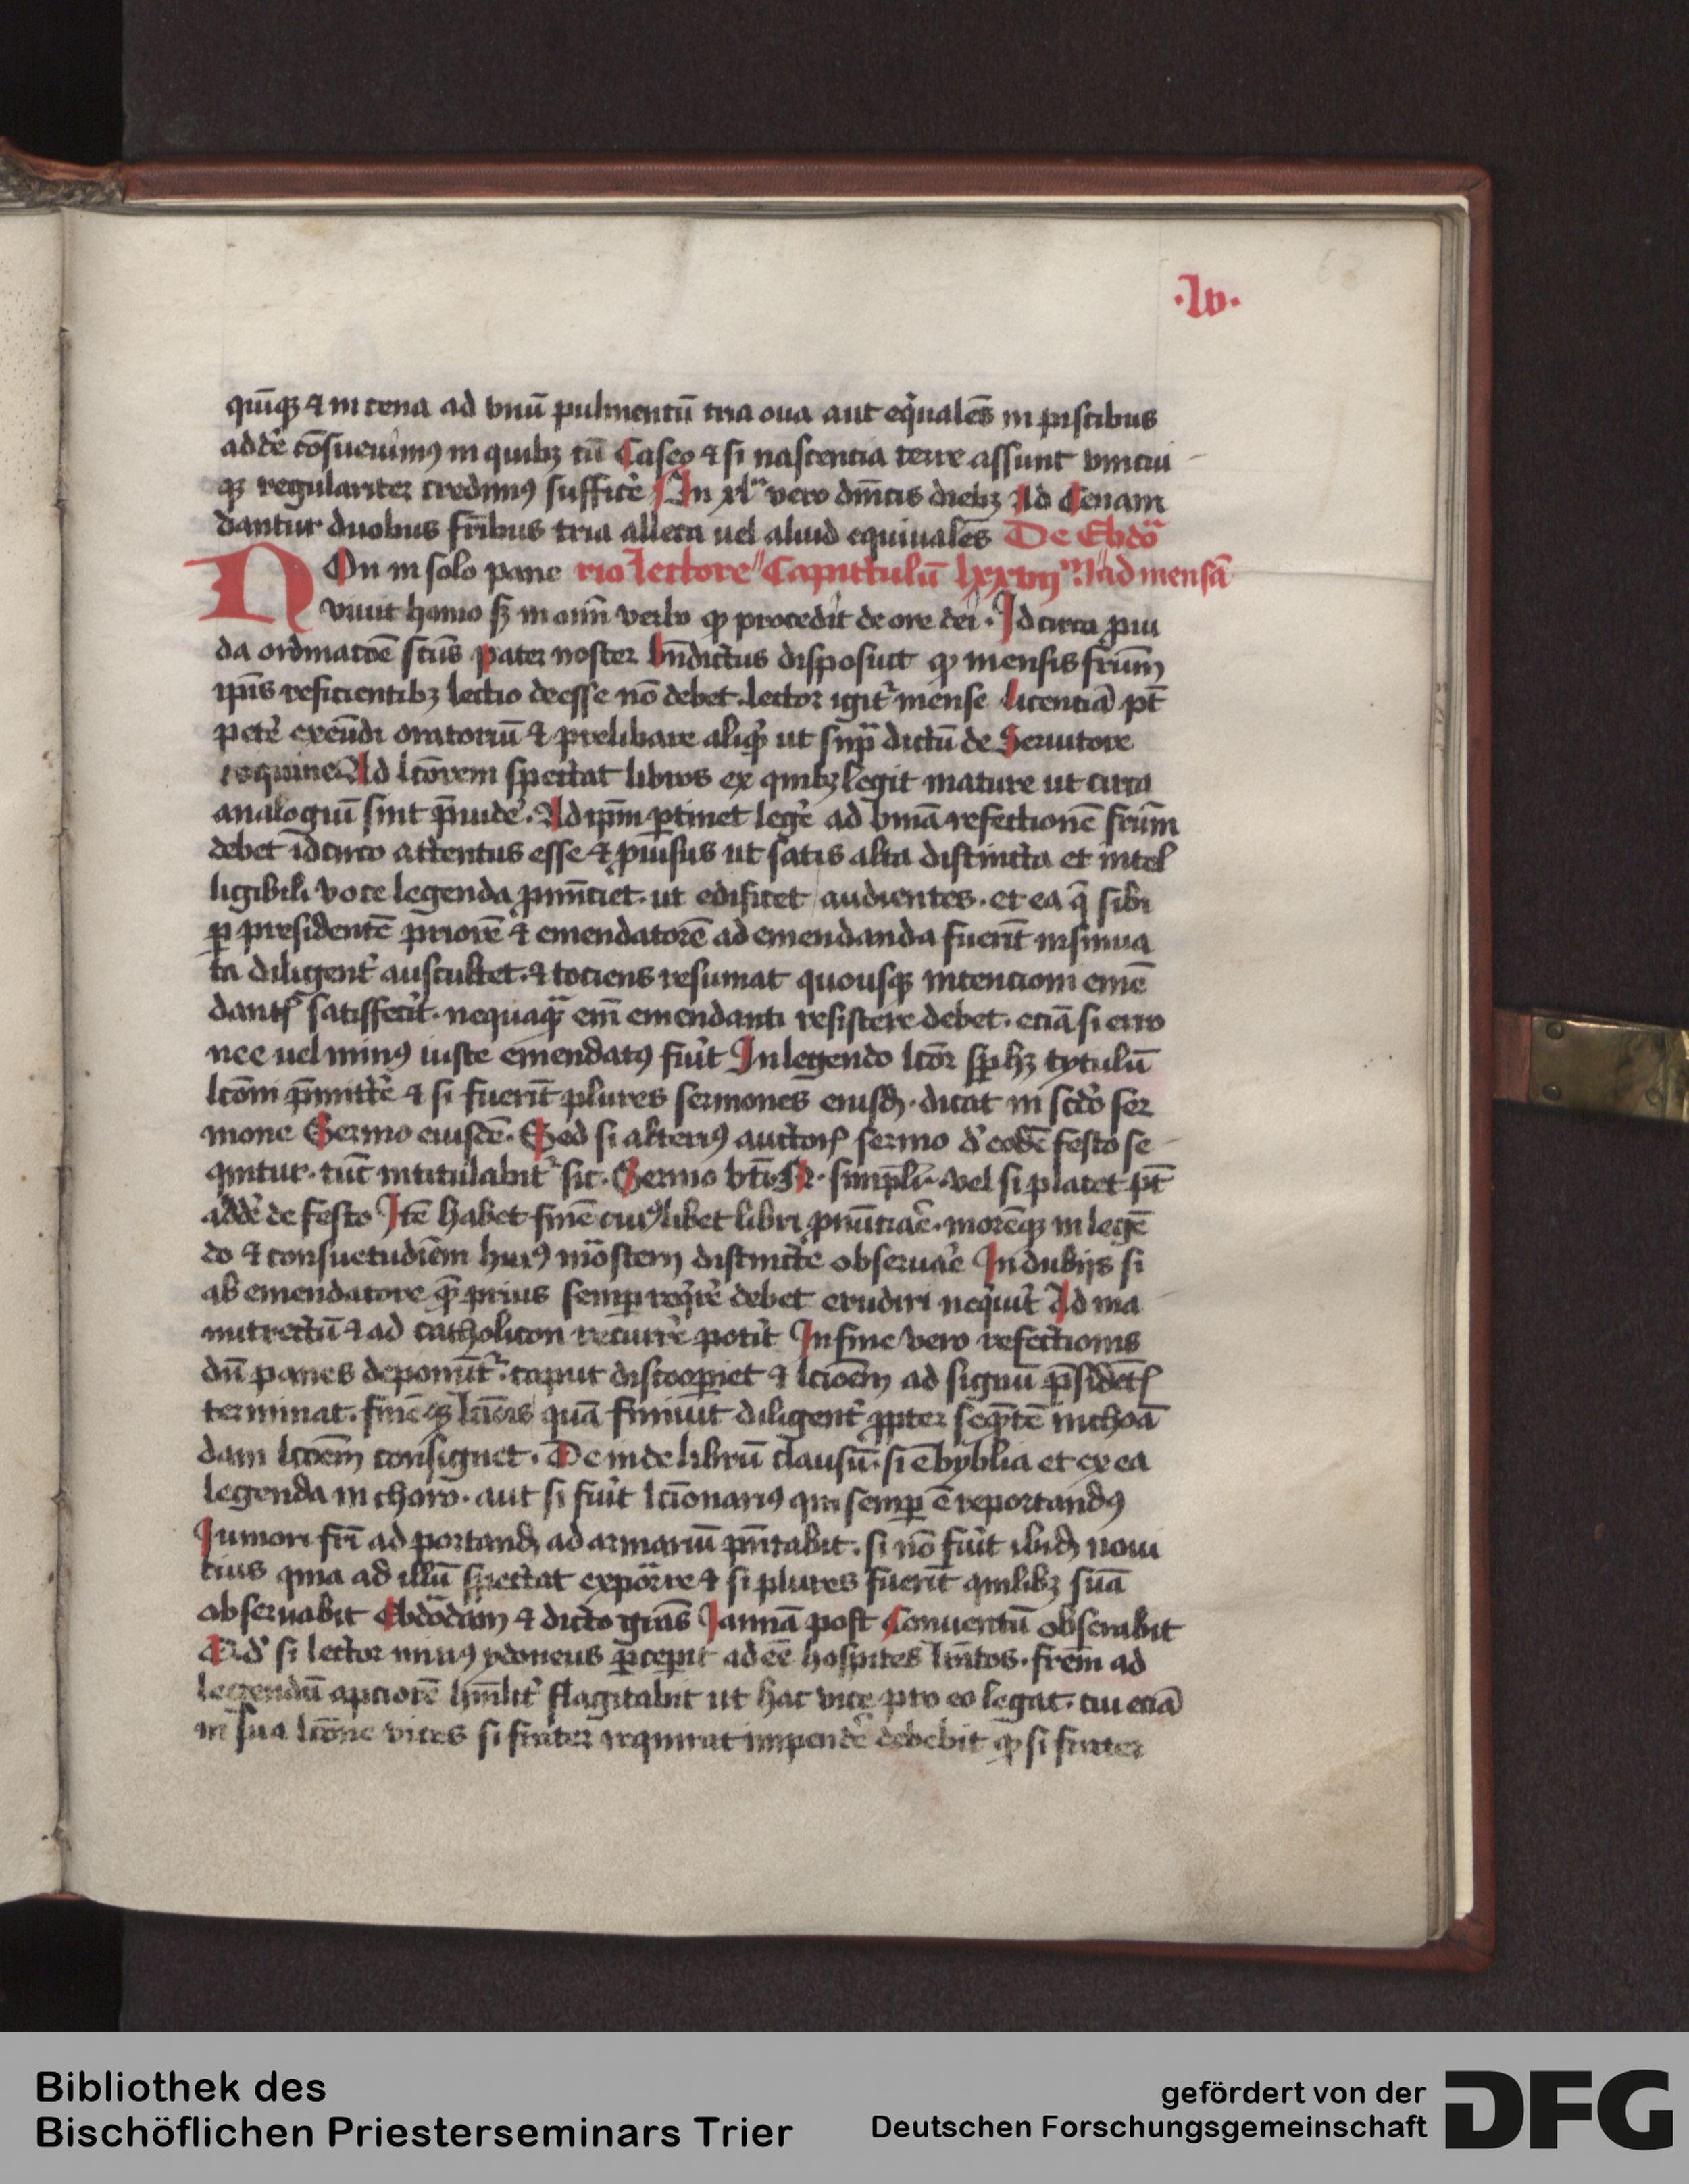 63
·lv·
quīqꝫ ⁊ in cena ad vnū pulmentū tria oua aut eqͥualēs in piscibus
addē cōsueuimꝯ in quibꝫ tn̄ Caseo ⁊ si nascentia terre assunt vnicui
qꝫ regulariter credimꝯ sufficē In xlᵃ vero dn̄icis diebꝫ Ad Cenam
dantur duobus fr̄ibus tria alleca uel aliud equiualēs De Ebdoᵃ
NOn in solo pane rio lectore Capittulū lxxvijᵐ ad mensā
viuit homo sꝫ in om̄i verbo qꝫ procedit de ore dei · Idcirco ꝓui
da ordinatōe sc̄us pater noster bn̄dictus disposuit qꝫ mensis fr̄um
ip̄is reficientibꝫ lectio deesse nō debet · lector igitᷣ mense licentiā pt̄
petē exeūdi oratoriū ⁊ prelibare aliqͥd ut supᷓ dictū de Seruitore
require Ad lc̄orem spectat libros ex quibꝫ legit mature ut circa
analogiū sint p̄uidē · Ad ip̄m ꝑtinet legē ad vnā refectionē fr̄um
debet idcirco attentus esse ⁊ ꝓuisus ut satis alta distincta et intel
ligibili voce legenda ꝓnūciet · ut edificet audientes · et ea q̄ sibi
ꝑ presidentē priorē ⁊ emendatorē ad emendanda fuerīt insinua
ta diligentᷣ auscultet · ⁊ tociens resumat quousqꝫ intencioni emē
dantꝭ satisfecᷣit · nequaqᷓ em̄ emendanti resistere debet · eciā si erro
nee uel minꝯ iuste emendatꝯ fuᷣit In legendo lc̄or sꝑ hꝫ tytulū
lc̄oni p̄mittē ⁊ si fuerīt plures sermones eiusdꝫ · dicat in scd̄o ser
mone Sermo eiusdē · Sed si alteriꝯ auctorꝭ sermo dᷣ eodē festo se
quitur · tūc intitulabitᷣ sic · Sermo bt̄i · N · simpl̄r · vel si placet pt̄
addē de festo Itē habet finē cuiꝯlibet libri ꝓnūciare · morēqꝫ in legē
do ⁊ consuetudiem huiꝯ mōsterij distincte obseruare In dubijs si
ab emendatore quē prius semꝑ reqͥrē debet erudiri nequiᷣt Ad ma
mitrectū ⁊ ad catholicon recurrē potᷣit In fine vero refectionis
dū panes deponūtᷣ · caput discooperiet ⁊ lc̄ionem ad signū p̄sidētꝭ
terminat · finēqꝫ lc̄ionis quā finiuit diligentᷣ ꝓpter seqūtē inchoā
dam lc̄oem consignet · Deinde librū clausū · si ē byblia et ex ea
legenda in choro · aut si fuᷣit lc̄ionariꝯ qui semꝑ ē reportandꝯ
Iuniori fr̄i ad portandꝫ ad armariū pn̄tabit · si nō fuᷣit ibidꝫ noui
cius quia ad illū spectat exportare ⁊ si plures fuerīt quilibꝫ suā
obseruabit Ebdodam ⁊ dicto gr̄as Ianuā post Conuentū obserabit
Qd̕ si lector minꝯ ydoneus ꝑcepit adeē hospites lrātos · frēm ad
legendū apciorē hūilitᷣ flagitabit ut hac vice pro eo legat · cui eciā
in sua lc̄one vices si frater requirat impendē debebit qꝫ si frater
Bibliothek des
Bischöflichen Priesterseminars Trier
gefördert von der
Deutschen Forschungsgemeinschaft
DFG